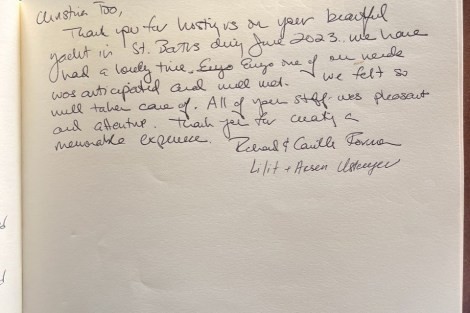 Christina Too,
Thank you for hosting us on your beautiful
yacht in St. Barths during June 2023. We have
had a lovely time. Every one of our needs
was anticipated and well met. We felt so
well taken care of. All of your staff was pleasant
and attentive. Thank you for creating a
memorable experience. Richard & Camille
Lilit + Arsen